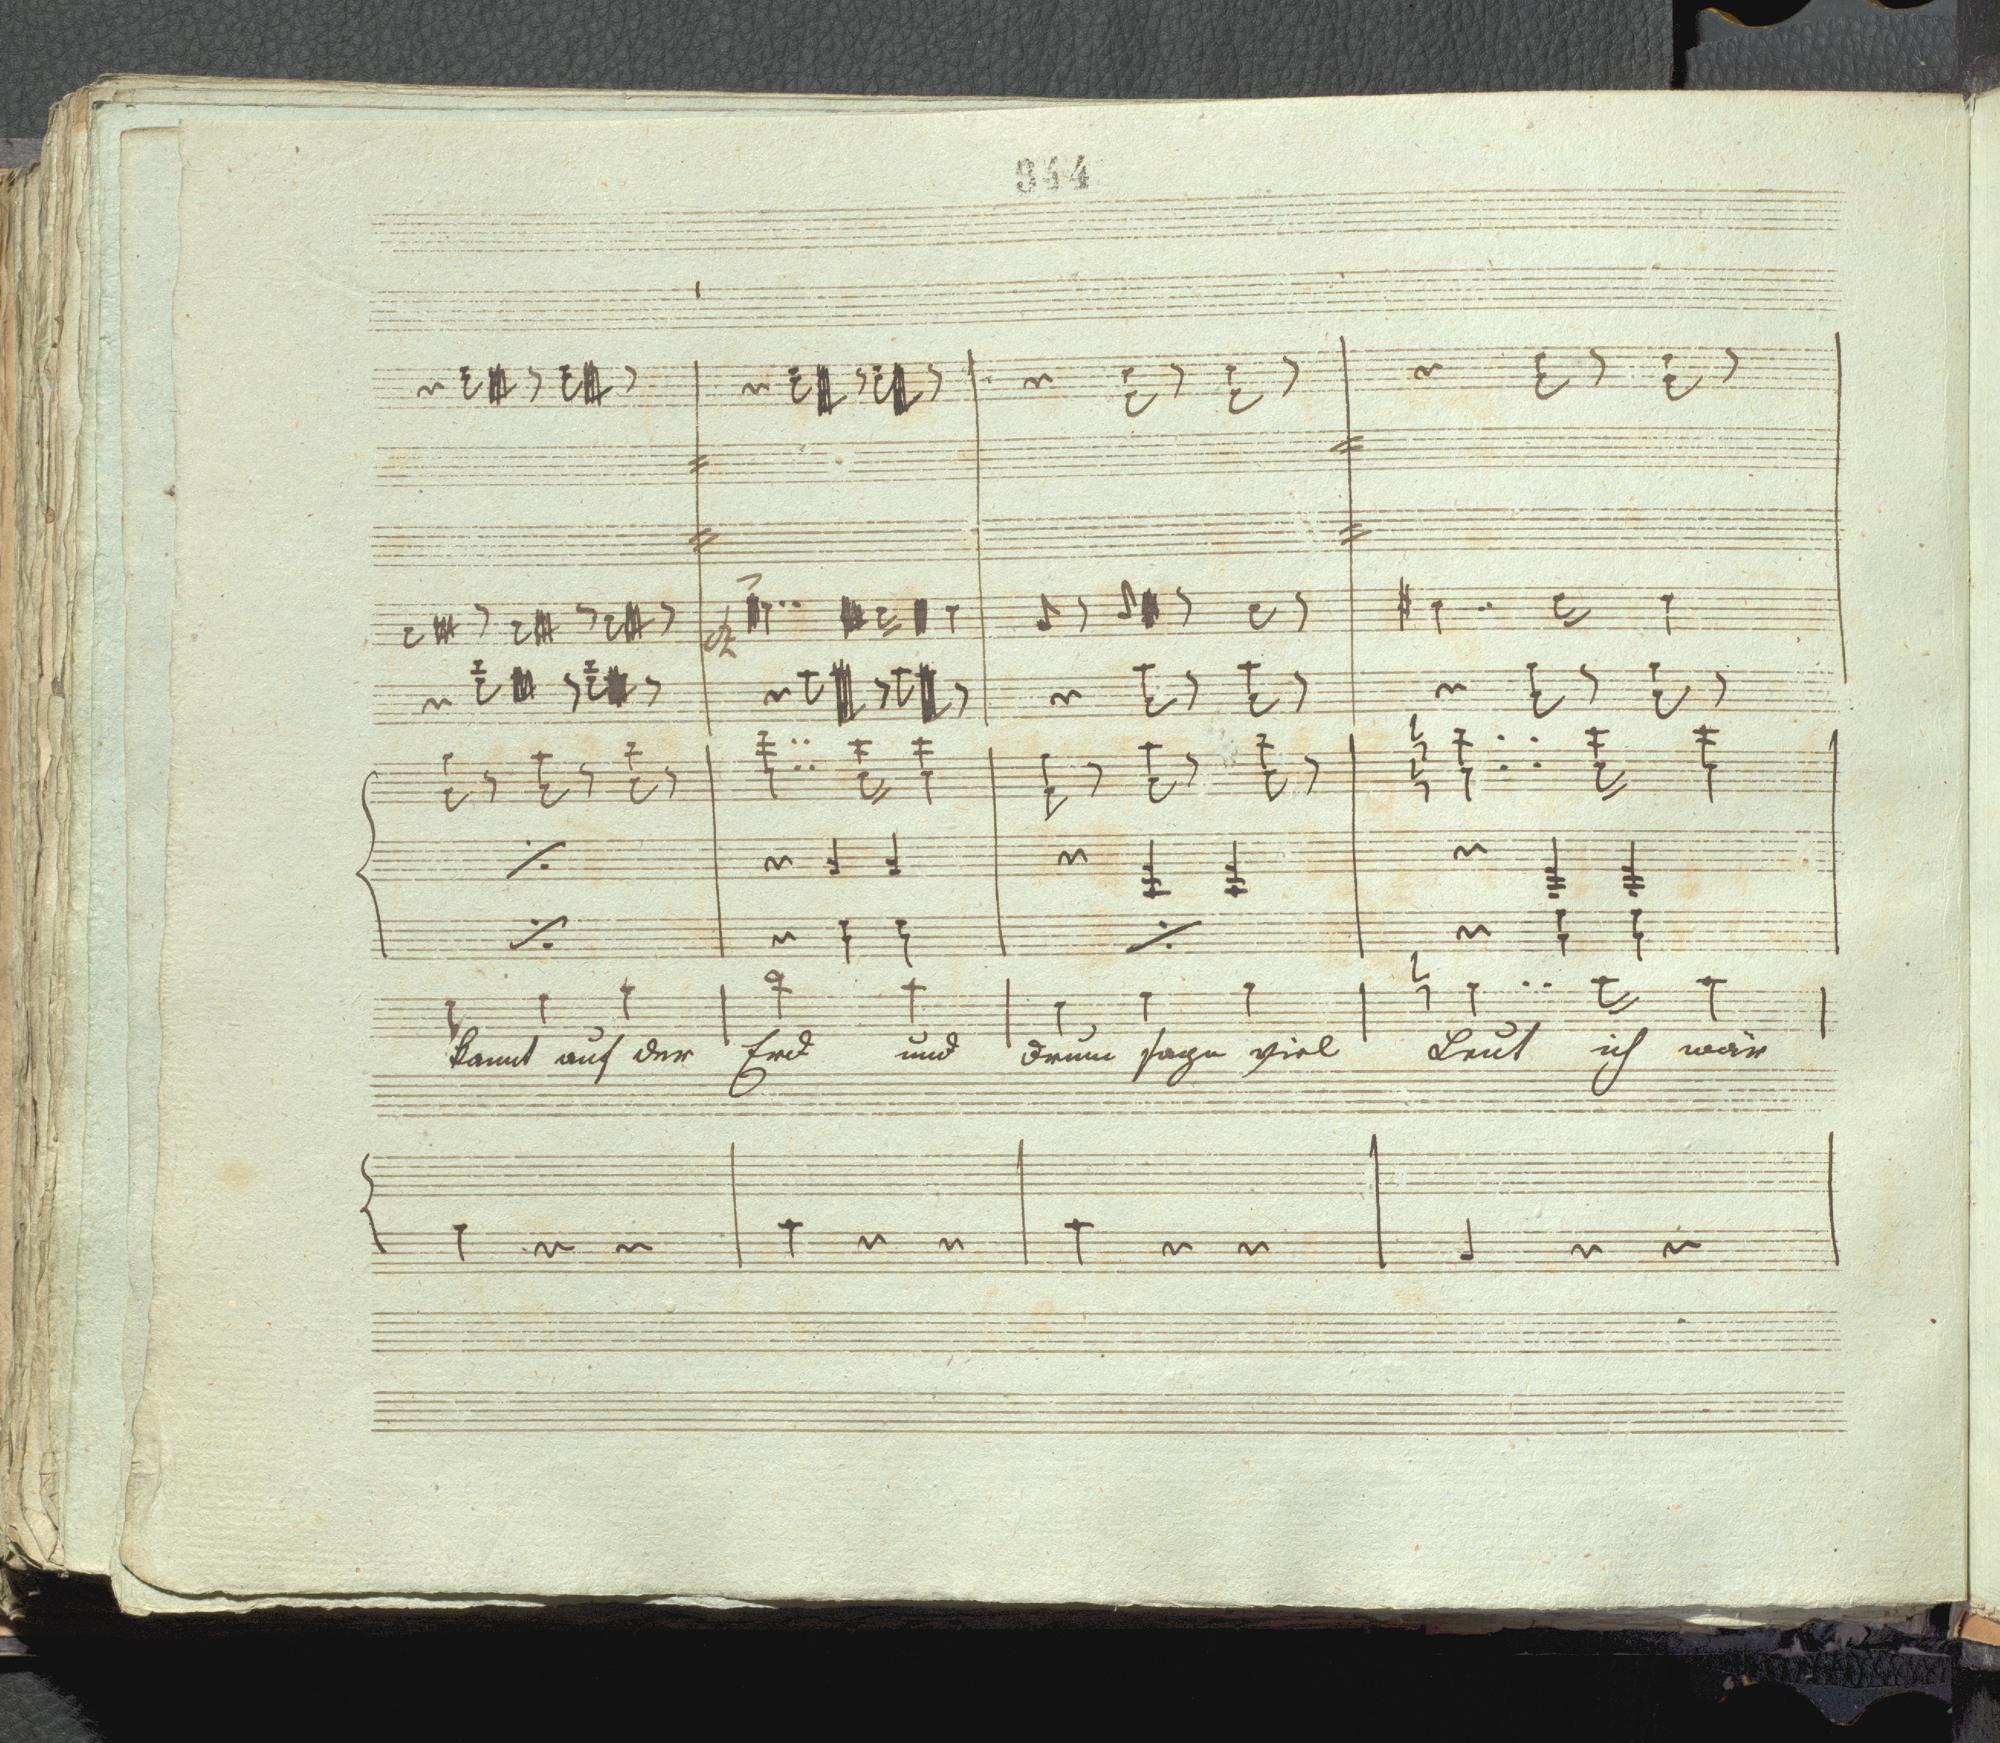 344
kannt auf der Erd und drum sagn viel Leut ich wär